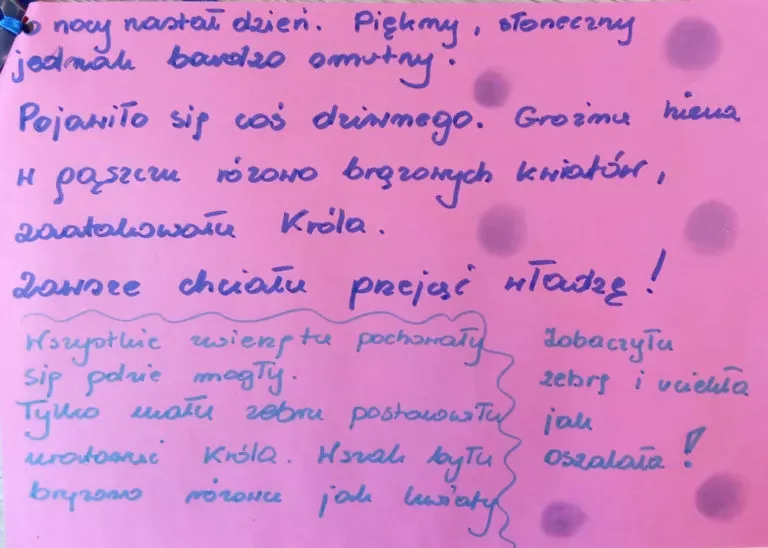 o nocy nastał dzień. Piękny, słoneczny
jednak bardzo smutny.
Pojawiło się coś dziwnego. Groźna hiena
w gąszczu różowo brązowych kwiatów,
zaatakowała Króla.
Zawsze chciała przejąć władzę!
Wszystkie zwierzęta pochowały
się gdzie mogły.
Tylko mała zebra postanowiła
uratować Króla. Wszak była
brązowo różowa jak kwiaty
Zobaczyła
zebrę i uciekła
jak
oszalała!